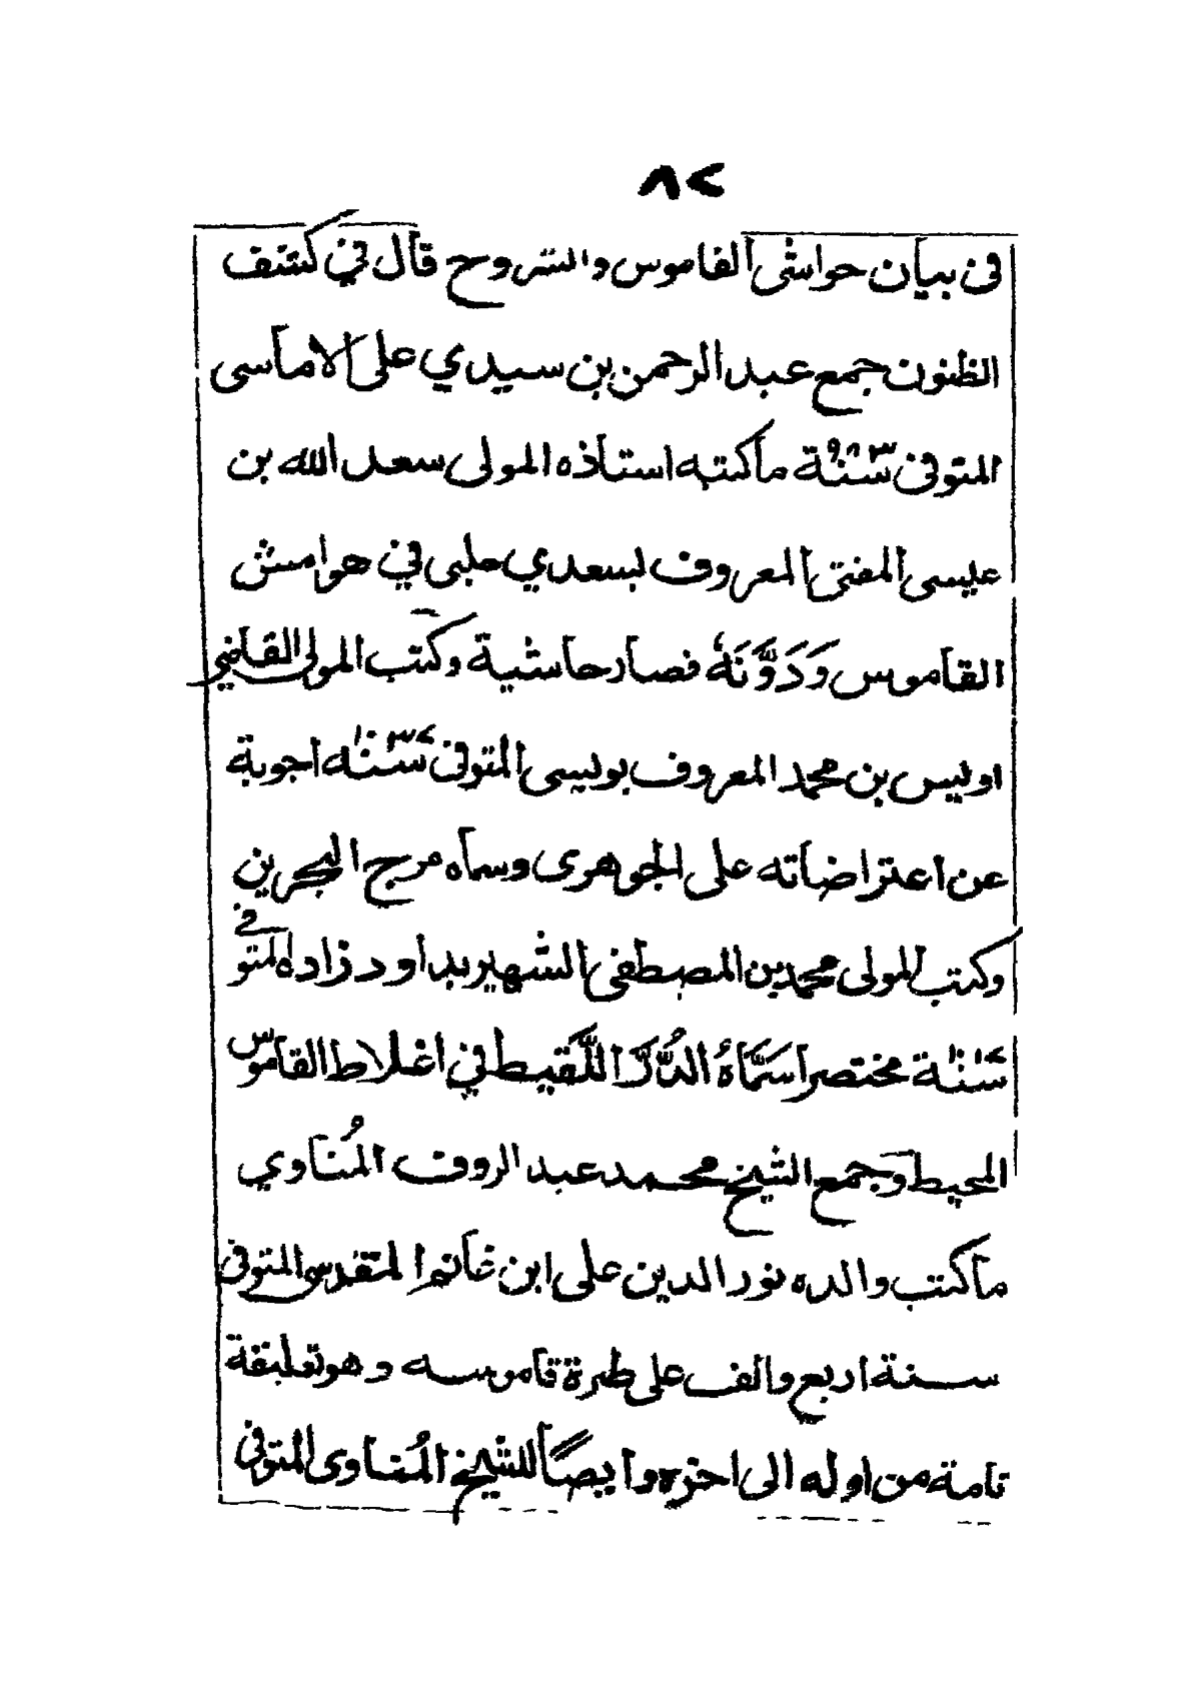 ٨٢
فى بيان حواشى القاموس والشروح قال في كشف
الظنون جمع عبد الرحمن بن سيدي على الاماسى
المتوفى سنة ٩٨٣ ماكتبه استاذه المولى سعد الله بن
عيسى المفتى المعروف بسعدي چلبى في هوامش
القاموس وَدَوَّنَهُ فصار حاشية وكتب المولى القاضي
اويس بن محمد المعروف بويسى المتوفى سنه اجوبة
عن اعتراضاته على الجوهرى وسماه مرج البحرين
وكتب المولى محمد بن المصطفى الشهير بداود زاده المتوفى
سنة مختصرا سَمَّاهُ الدُّرَّ اللَّقيط في اغلاط القاموس
المحيط وجمع الشيخ محمد عبد الروف المُناوي
ماكتب والده نور الدين على ابن غانم المقدسى المتوفى
سنة اربع والف على طرة قاموسه وهو تعليقة
تامة من اوله الى اخره وايضاً للشيخ المُناوى المتوفى